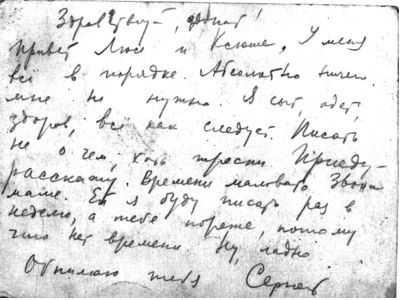 Здравствуй, Донат!
Привет Люсе и Ксюше. У меня
всё в порядке. Абсолютно ничего
мне не нужно. Я сыт, одет,
здоров, всё как следует. Писать
не о чем, хоть тресни. Приеду-
расскажу. Времени маловато. Звони
маме. Ей я буду писать раз в
неделю, а тебе пореже, потому
что нет времени. Ну, ладно.
Обнимаю тебя Сергей